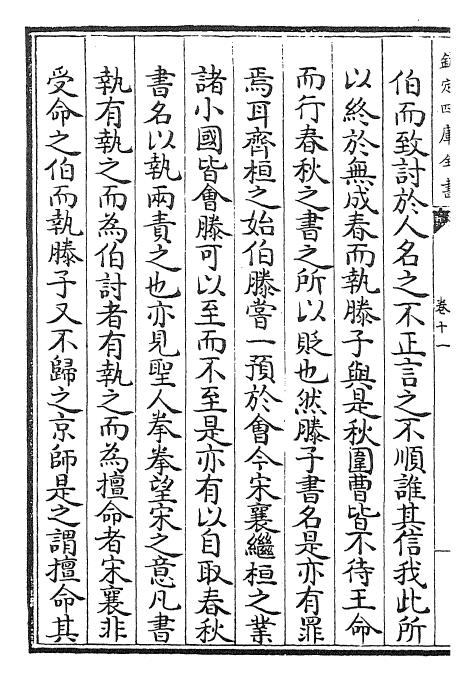 欽定四庫全書
卷十一
伯而致討於人名之不正言之不順誰其信我此所
以終於無成春而執滕子與是秋圍曹皆不待王命
而行春秋之書之所以貶也然滕子書名是亦有罪
焉耳齊桓之始伯滕嘗一預於會今宋襄繼桓之業
諸小國皆會滕可以至而不至是亦有以自取春秋
書名以執兩責之也亦見聖人拳拳望宋之意凡書
執有執之而為伯討者有執之而為擅命者宋襄非
受命之伯而執滕子又不歸之京師是之謂擅命其